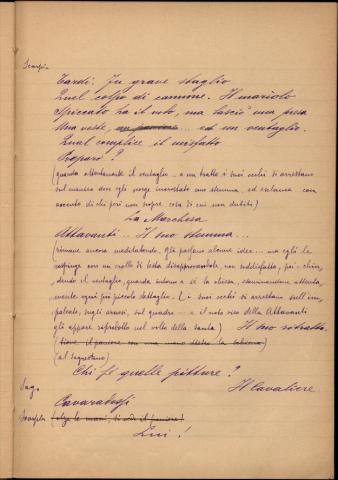 Scarpia
Tardi. Fu grave sbaglio
Quel colpo di cannone. Il mariolo
Spiccato ha il volo, ma lasciò una presa
Una veste, ... ed un ventaglio.
Qual complice il misfatto
Preparò?
(guarda attentamente il ventaglio - a un tratto i suoi occhi si arrestano
sul manico ove egli scorge incrostato uno stemma, ed esclama con
accento di chi però non sapere cosa di cui non dubiti)
La Marchesa
Attavanti... Il suo stemma...
(rimane ancora meditabondo. Gli parlano alcune idee... ma egli le
respinge con un crollo di testa disapprovandole, non soddisfatto, poi, chiu-
dendo il ventaglio, guarda intorno a sé la chiesa, esaminandone attenta-
mente ogni più piccolo dettaglio. (- I suoi occhi si arrestano sull'im-
palcato, sugli arnesi, sul quadro - e il noto viso della Attavanti
gli appare riprodotto nel volto della santa) Il suo ritratto.
(al Sagrestano)
Chi fe' quelle pitture?
Sag. Il Cavaliere
Cavaradossi
Scarpia
Lui!